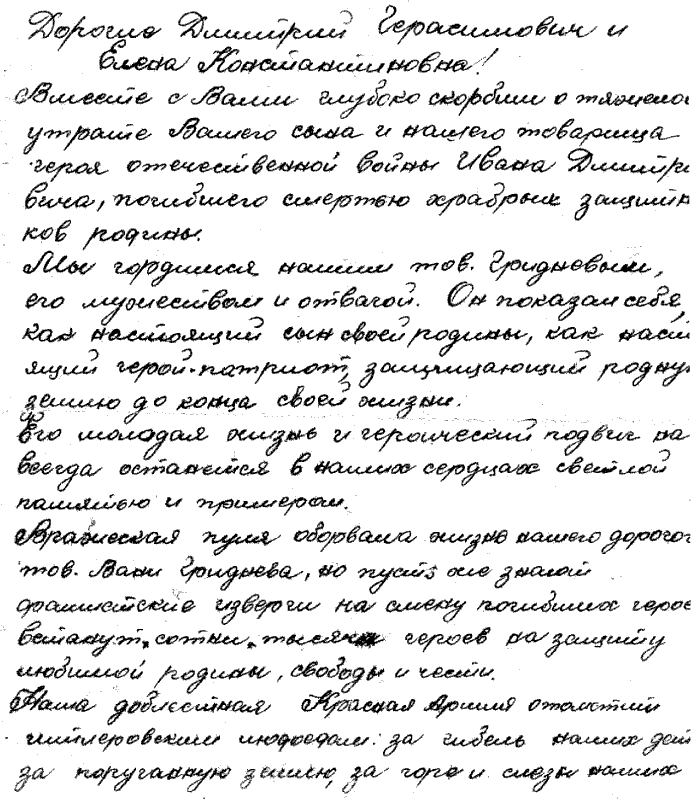 Дорогие Дмитрий Герасимович и
Елена Константиновна!
Вместе с Вами глубоко скорбим о тяжелой
утрате Вашего сына и нашего товарища
героя отечественной войны Ивана Дмитри
вича, погибшего смертью храбрых защитн
ков родины.
Мы гордимся нашим тов. Гридневым,
его мужеством и отвагой. Он показал себя,
как настоящий сын своей родины, как наст
ящий герой-патриот, защищающий родну
землю до конца своей жизни.
Его молодая жизнь и героический подвиг на
всегда останется в наших сердцах светлой
памятью и примером.
Вражеская пуля оборвала жизнь нашего дорогог
тов. Вани Гриднева, но пусть же знают
фашистские изверги на смену погибших герое
встанут сотни, тысячи героев на защиту
любимой родины, свободы и чести.
Наша доблестная Красная Армия отомстит
гитлеровским людоедам: за гибель наших дет
за поруганную землю, за горе и слезы наших